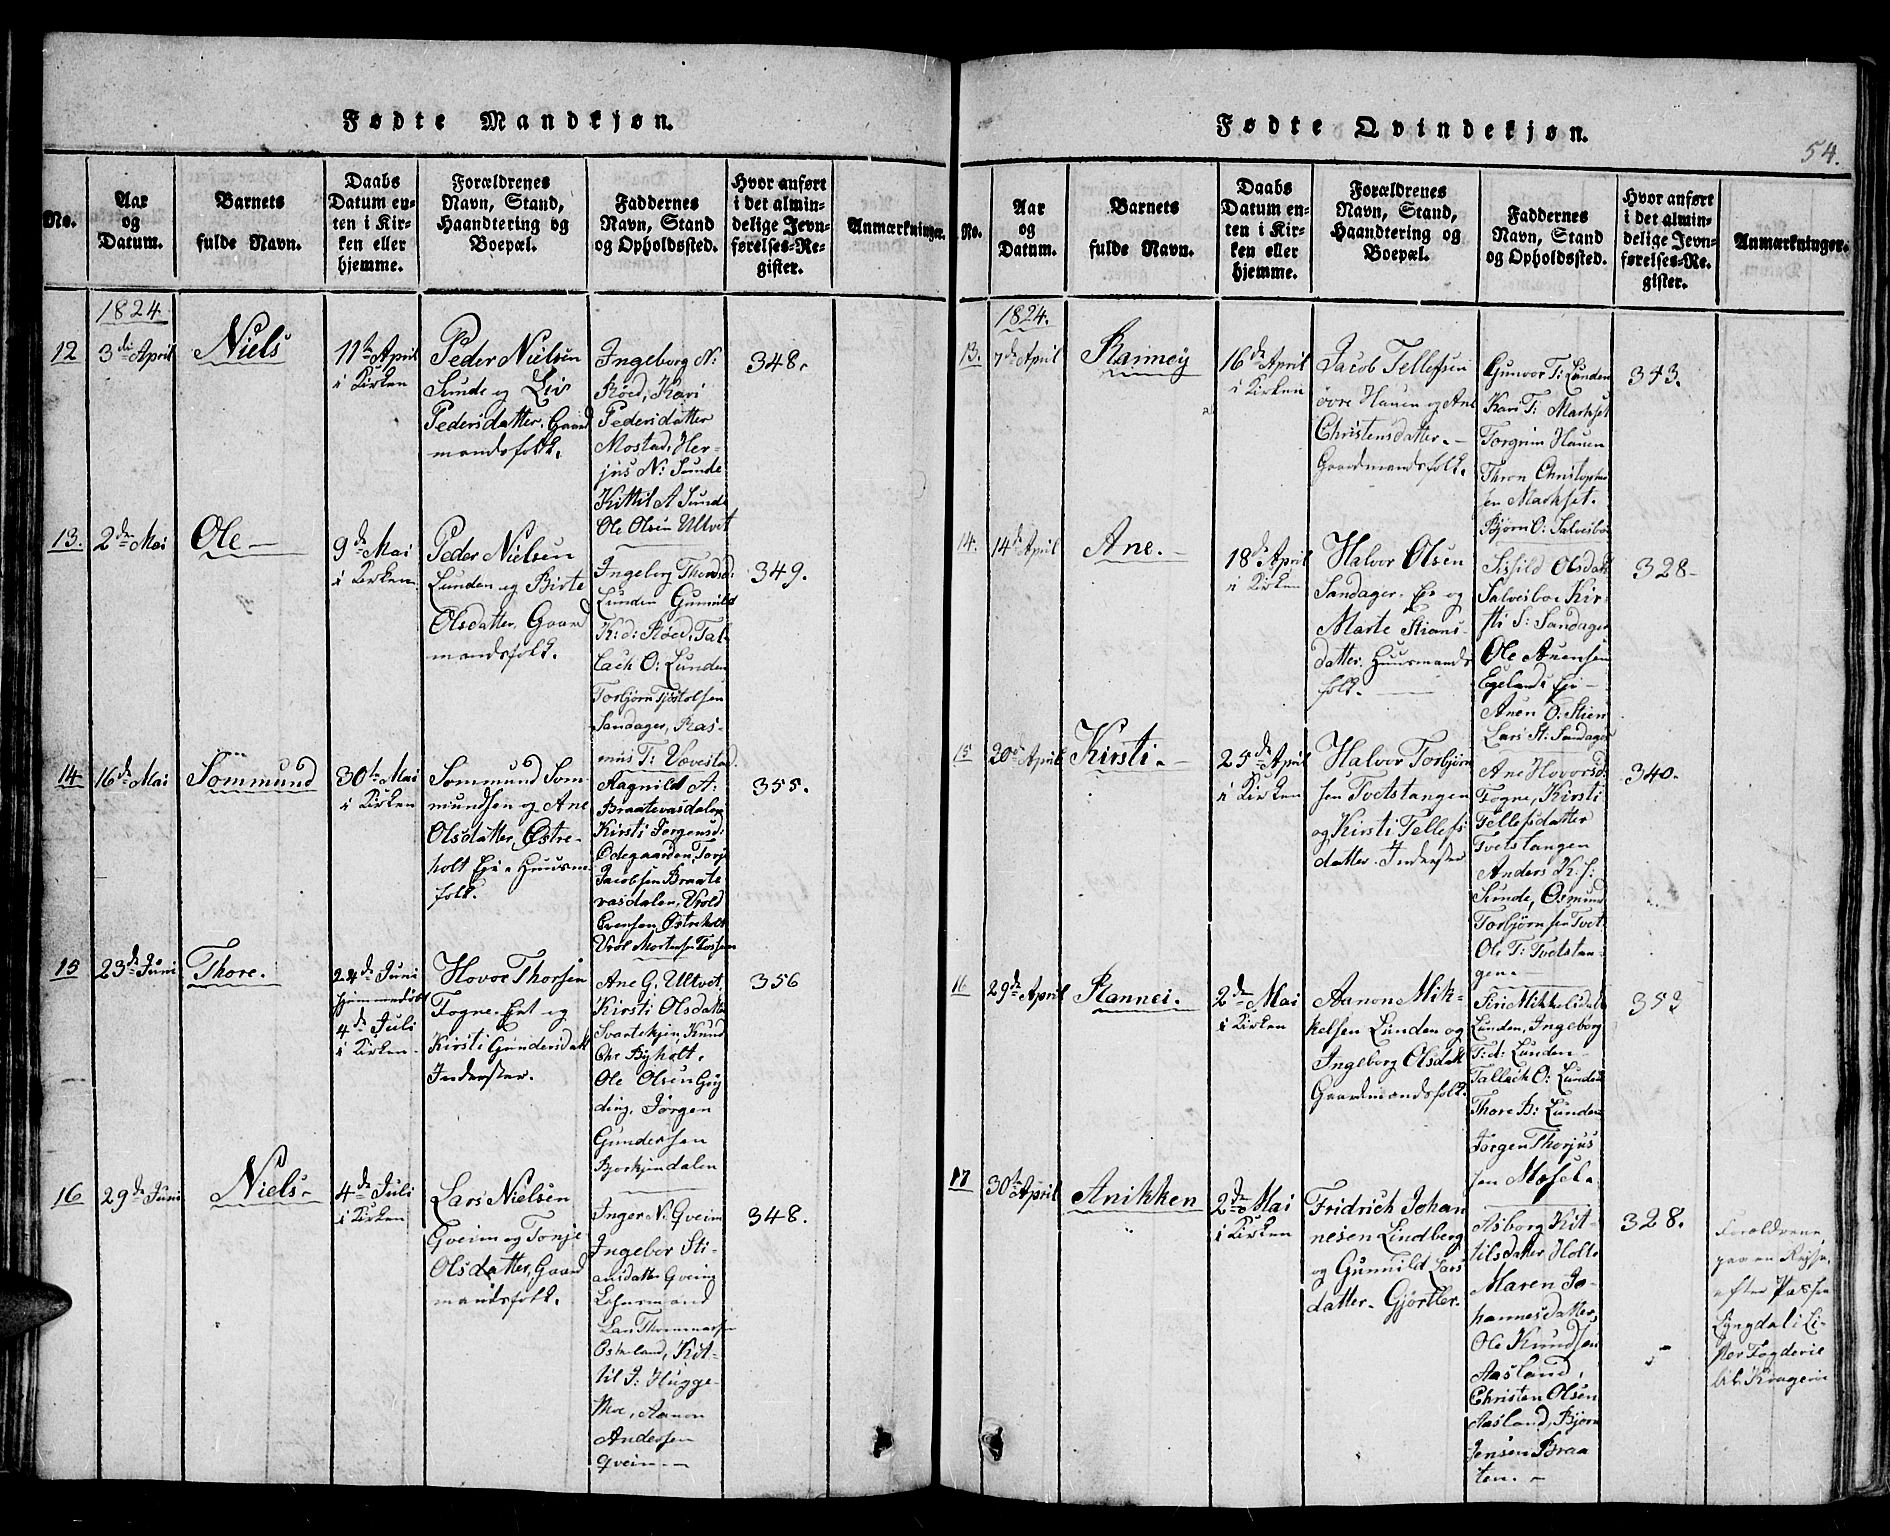 Fødte Mandkjøn.
No.
Aar
og
Datum.
Barnets
fulde Navn.
Daabs
Datum en-
ten i Kir-
ken eller
hjemme.
Forældrenes
Navn, Stand,
Haandtering og
Boepæl.
Faddernes
Navn, Stand
og Opholdssted.
Hvor anført
i det almin-
delige Jevn-
førelses-Re-
gister.
Anmærkninger.
1824.
12
3die April
Niels
11te April
i Kirken
Peder Nielsen
Sunde og Liv
Pedersdatter. Gaard
mandsfolk.
Ingeborg N:
Røed, Kari
Pedersdatter
Mostad, Her-
jus N: Sunde
Kittil A Sunde
Ole Olsen Ultvet
348.
13.
2den Mai
Ole
9de Mai
i Kirken
Peder Nielsen
Lunden og Birte
Olsdatter, Gaard
mandsfolk.
Ingeborg Thordsd:
Lunden Gunnild
K: d: Røed, Tal-
lach O: Lunden
Torbjørn Tjøstolsen
Sandager, Ras-
mus T: Vævestad
349.
14
16de Mai
Sommund
30te Mai
i Kirken
Sommund Som-
mundsen og Ane
Olsdatter, Østre-
holt Eje. Huusm-
folk.
Aagnild A:
Braatevasdalen
Kirsti Jørgensd:
Ødegaarden, Torje
Jacobsen Braate
vasdalen, Vrold
Evensen Østreholt
Vrol Mortensen
355.
15
23de Juni
Thore.
24de Juni
hjemmedøbt
4de Juli
i Kirken
Hovor Thorsen
Fogne. Eiet og
Kirsti Gundersdatt
Inderster.
Ane G. Ultvet,
Kirsti Olsdatter
Svartekjen, Knud
Chr Byholt,
Ole Olsen Gry
ding, Jørgen
Gundersen
Bjorkjendalen
356
16
29de Juni
Niels
4de Juli
i Kirken
Lars Nielsen
Gveim og Tonje
Olsdatter, Gaard
mandsfolk.
Inger N. Gveim
Ingebor Sti-
ansdatter Gveim
Lehnsmand
Lars Thommasen
Osteland, Kit-
til J: Hugge-
Moe, Aanon
Andersen
Gveim
348.
Fødte Qvindekjøn.
54.
No.
Aar
og
Datum.
Barnets
fulde Navn.
Daabs
Datum en-
ten i Kir-
ken eller
hjemme.
Forældrenes
Navn, Stand,
Haandtering og
Boepæl.
Faddernes
Navn, Stand
og Opholdssted.
Hvor anført
i det almin-
delige Jevn-
førelses-Re-
gister.
Anmærkninger.
1824.
13.
7de April
Ranney
16de April
i Kirken
Jacob Tellefsen
øvre Hauen og Ane
Christensdatter.
Gaardmandsfolk.
Gunvor T: Lunden
Kari T: Markset
Torgrim Hauen
Thron Christophe
sen Markset.
Bjørn O: Salvesboe
353.
14.
14de April
Ane.
18de April
i Kirken
Halvor Olsen
Sandager. Eie og
Marte Stians-
datter. Huusmands
folk.
Sissild Olsdatt
Salvesboe Kir-
sti S: Sandager
Ole Auensen
Egelands Eje
Anen O. Stien
Lars St: Sandager
328
15
20de April
Kirsti.
25de April
i Kirken
Halvor Torbjørn
sen Tvetstangen
og Kirsti Tellefs
datter. Inderster
Ane Hovorsd:
Fogne, Kirsti
Tellefsdatter
Tvetstangen
Anders K. S:
Sunde, Osmund
Torbjørnsen Tvet-
Ole T: Tvetstan-
gen.
340.
16
29de April
Rannei.
2den Mai
i Kirken
Aanon Mik-
kelsen Lunden og
Ingeborg Olsdatt
Gaardmandsfolk.
Siri Mikkelsdatt
Lunden, Ingeborg
T: d: Lunden
Tallack O: Lunden
Thore B: Lunden
Jørgen Thorjus
sen Mosel.
353
17
30te April
Anikken
2den Mai
i Kirken
Fridrich Johan
nesen Lindberg
og Gunnild Lars
datter. Gjørtler.
Asborg Kit-
tilsdatter, Holte
Maren Jo-
hannesdatter,
Ole Knudsen
Aasland,
Christen Olsen
Aasland, Bjørn
Jensen Braa
ten.
328.
Forældrene
paa en Rejse,
efter Pas fra
Lyngdal i Li-
ster Fogderie
til Kragerøe